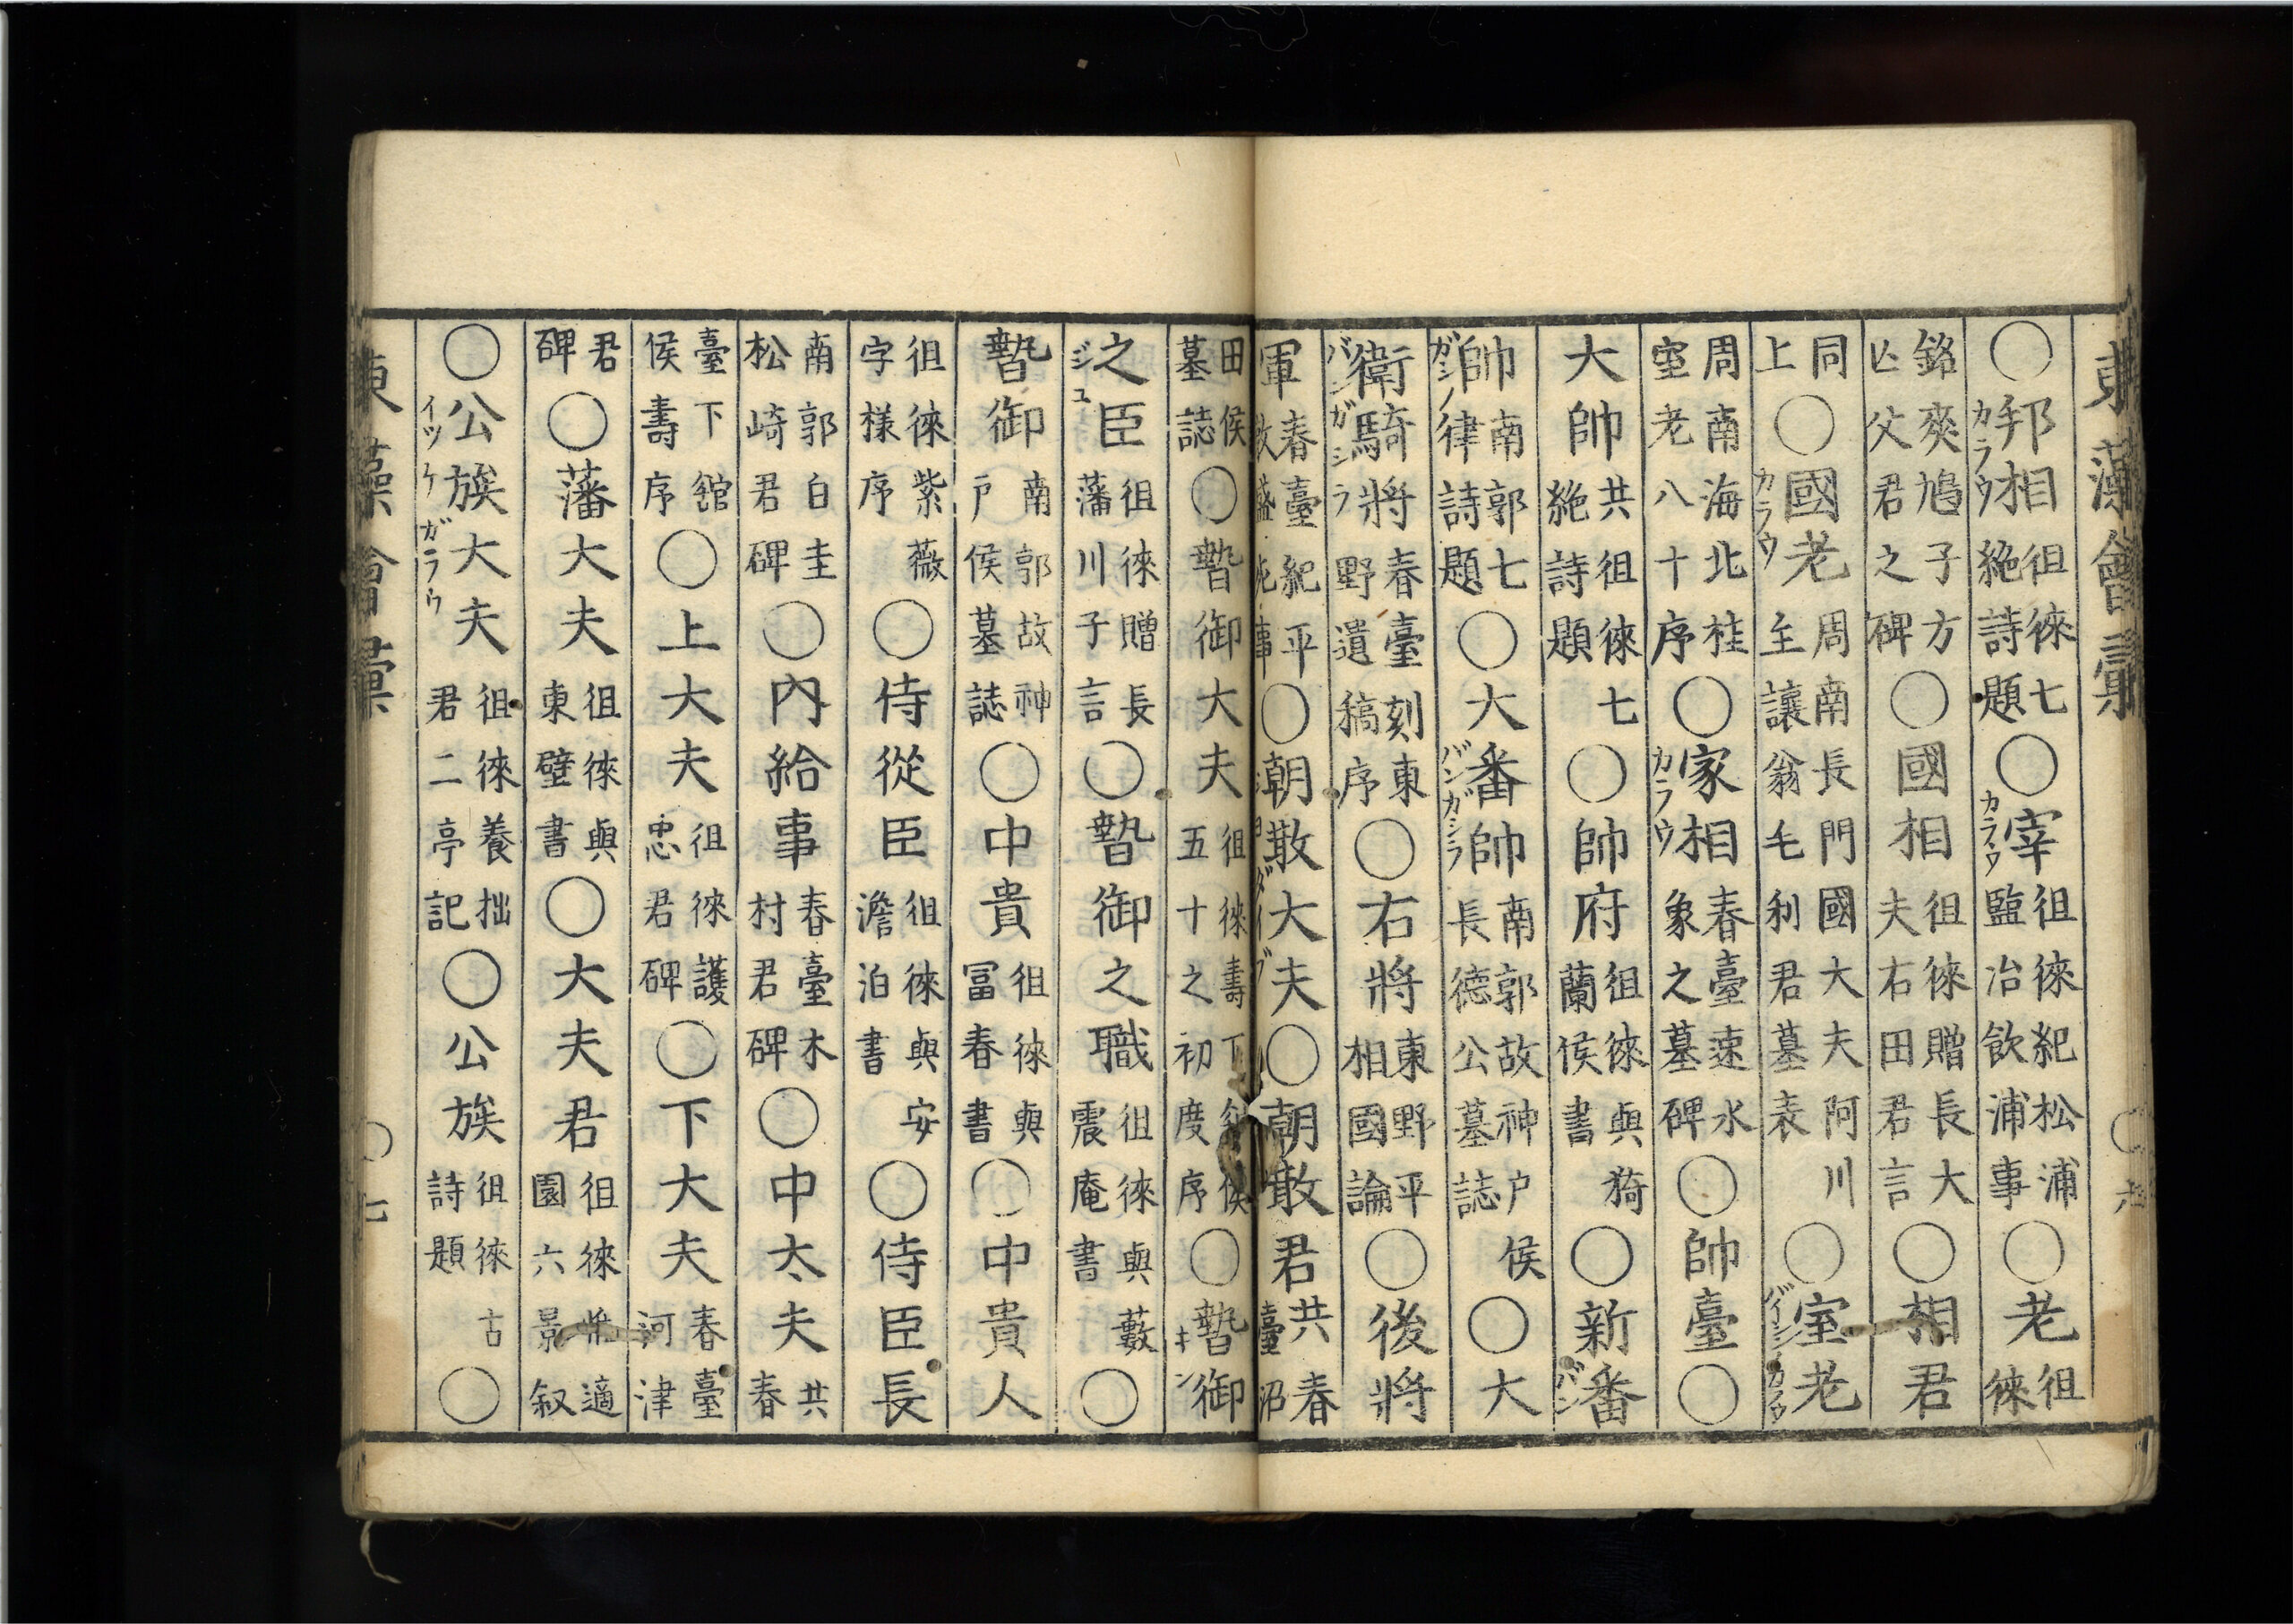 東藻會彙 〇六
〇邦相カラウ徂徠七絶詩題〇宰カラウ徂徠紀松浦監冶飲浦事〇老徂徠
銘奕鳩子方亾父君之碑〇國相徂徠贈長大夫右田君言〇相君
同上〇國老カラウ周南長門國大夫阿川主讓翁毛利君墓表〇室老バイシンカラウ
周南海北桂室老八十序〇家相カラウ春臺速水象之墓碑〇帥臺〇
大帥共徂徠七絶詩題〇帥府徂徠與猗蘭侯書〇新番バン
帥ガシラノ南郭七律詩題〇大番帥バンガシラ南郭故神户侯長德公墓誌〇大
衛騎將バンガシラ春臺刻東野遺稿序〇右將東野平相國論〇後將
軍春臺紀平敦盛死事〇朝散大夫〇朝散君共春臺沼
田侯墓誌〇暬御大夫徂徠壽下舘侯五十之初度序〇暬御キン
之臣ジユ徂徠贈長藩川子言〇暬御之職徂徠與藪震庵書〇
暬御南郭故神戸侯墓誌〇中貴徂徠與冨春書〇中貴人
徂徠紫薇字様序〇侍從臣徂徠與安澹泊書〇侍臣長
南郭白圭松崎君碑〇内給事春臺木村君碑〇中大夫共春
臺下舘侯壽序〇上大夫徂徠護忠君碑〇下大夫春臺河津
君碑〇藩大夫徂徠與東壁書〇大夫君徂徠適園六景叙
〇公族大夫イツケガラウ徂徠養拙君二亭記〇公族徂徠古詩題〇
東藻會彙 〇七